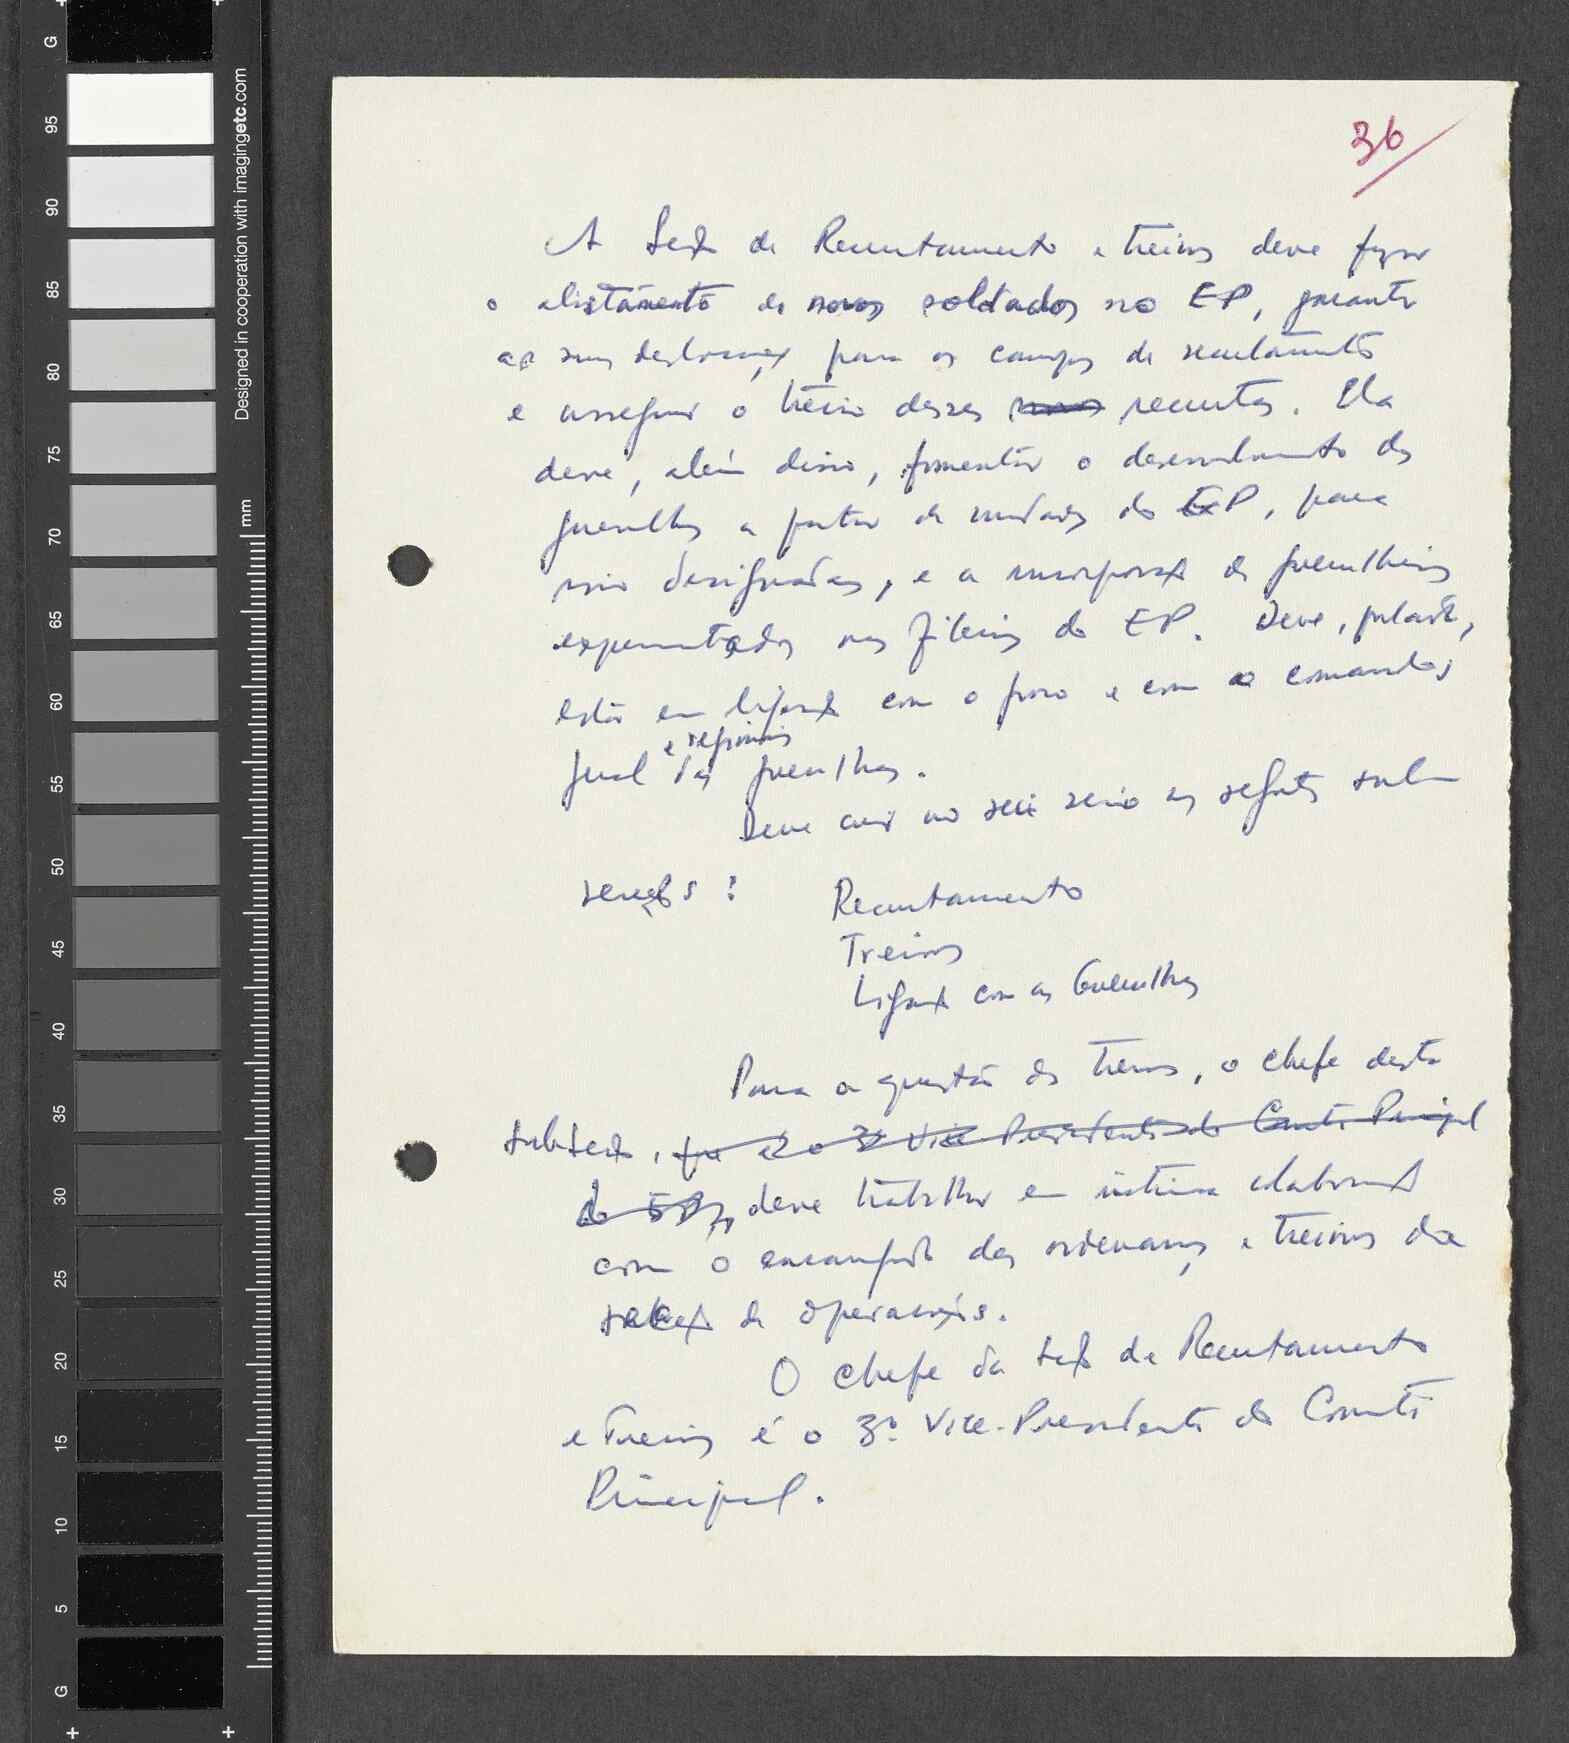 36
A Secç de Recrutamento e treinos deve fazer
o alistamento de novos soldados no EP, garantir
as suas deslocaç para os campos de recrutamento
e assegurar o treino desses recrutas. Ela
deve, além disso, fomentar o desenvolvimento das
guerrilhas a partir de unidades do EP, para
isso designadas, e a incorporaç de guerrilheiros
experimentados nas fileiras do EP. Deve, portanto,
estar em ligaç com o povo e com o comando
geral e regionais das guerrilhas.
Deve criar no seu seio as seguintes sub-
secções :
Recrutamento
Treinos
Ligaç com as Guerrilhas
Para a questão dos treinos, o chefe desta
subsecç, que é o 3º Vice Presidente do Comité Principal
do EP, deve trabalhar em íntima colaboraç
com o encarregado das ordenanças e treinos da
secç de operações.
O chefe da secç de Recrutamento
e Treinos é o 3º Vice-Presidente do Comité
Principal.
95
90
85
80
75
70
65
60
55
50
45
40
35
30
25
20
15
10
5
G
G
mm
Designed in cooperation with imagingetc.com